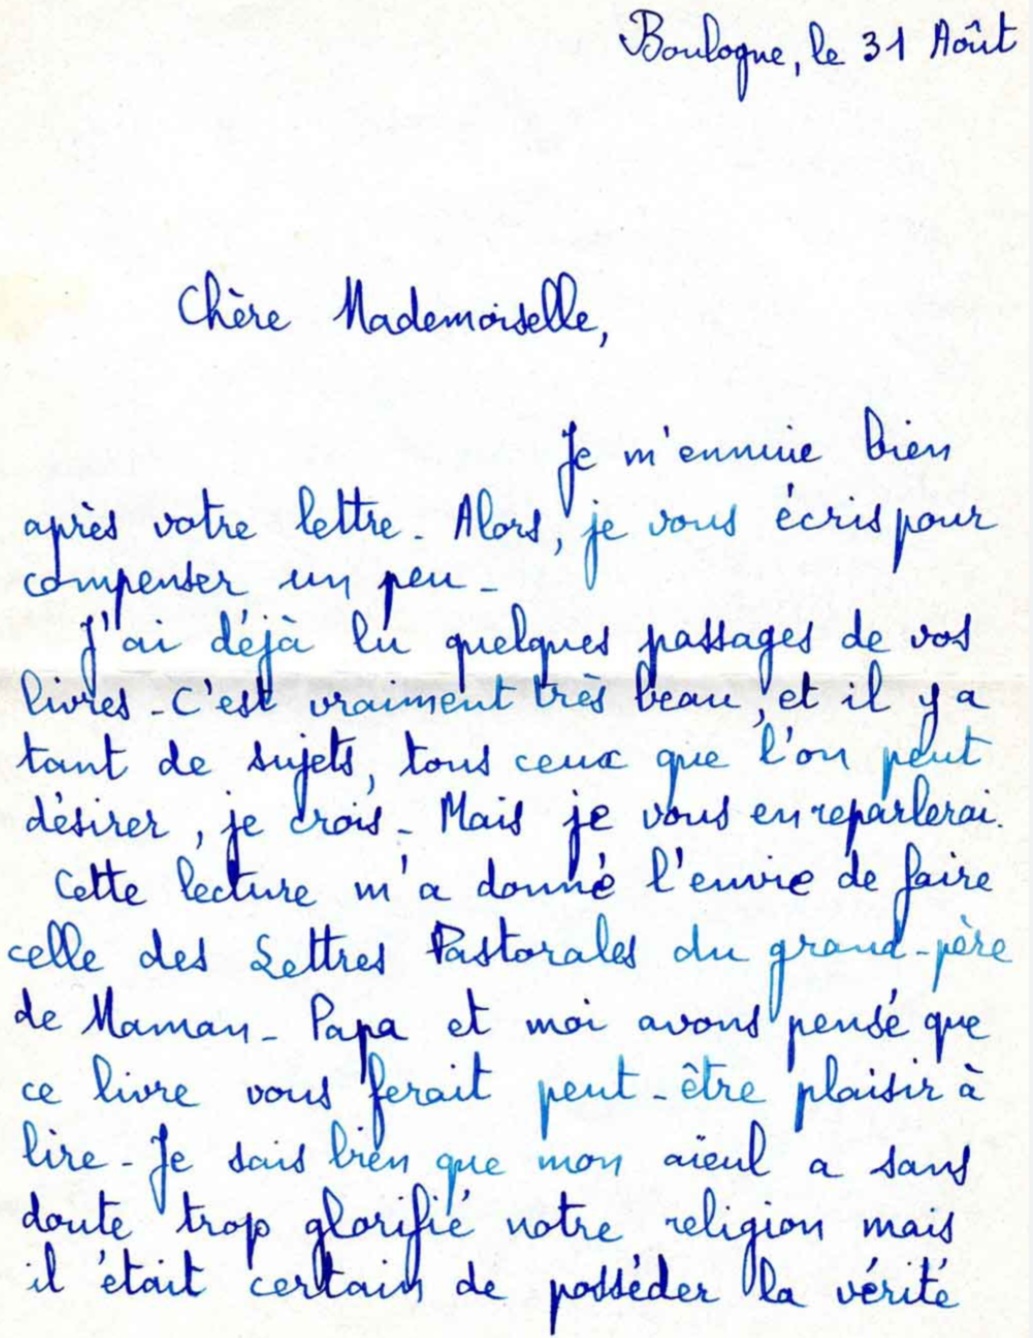 Boulogne, le 31 Août
Chère Mademoiselle,
Je m'ennuie bien
après votre lettre - Alors, je vous écris pour
compenser un peu -
J'ai déjà lu quelques passages de vos
livres - C'est vraiment très beau, et il y a
tant de sujets, tous ceux que l'on peut
désirer, je crois - Mais je vous en reparlerai.
Cette lecture m'a donné l'envie de faire
celle des Lettres Pastorales du grand-père
de Maman - Papa et moi avons pensé que
ce livre vous ferait peut-être plaisir à
lire - Je sais bien que mon aïeul a sans
doute trop glorifié notre religion mais
il était certain de posséder la vérité